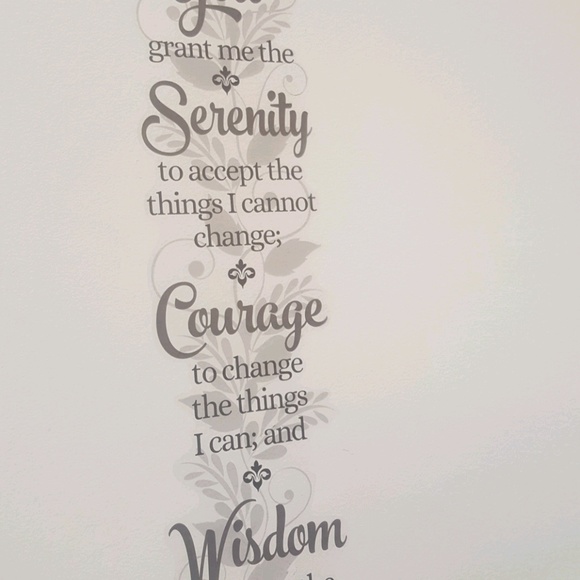 grant me the
Serenity
to accept the
things I cannot
change;
Courage
to change
the things
I can; and
Wisdom